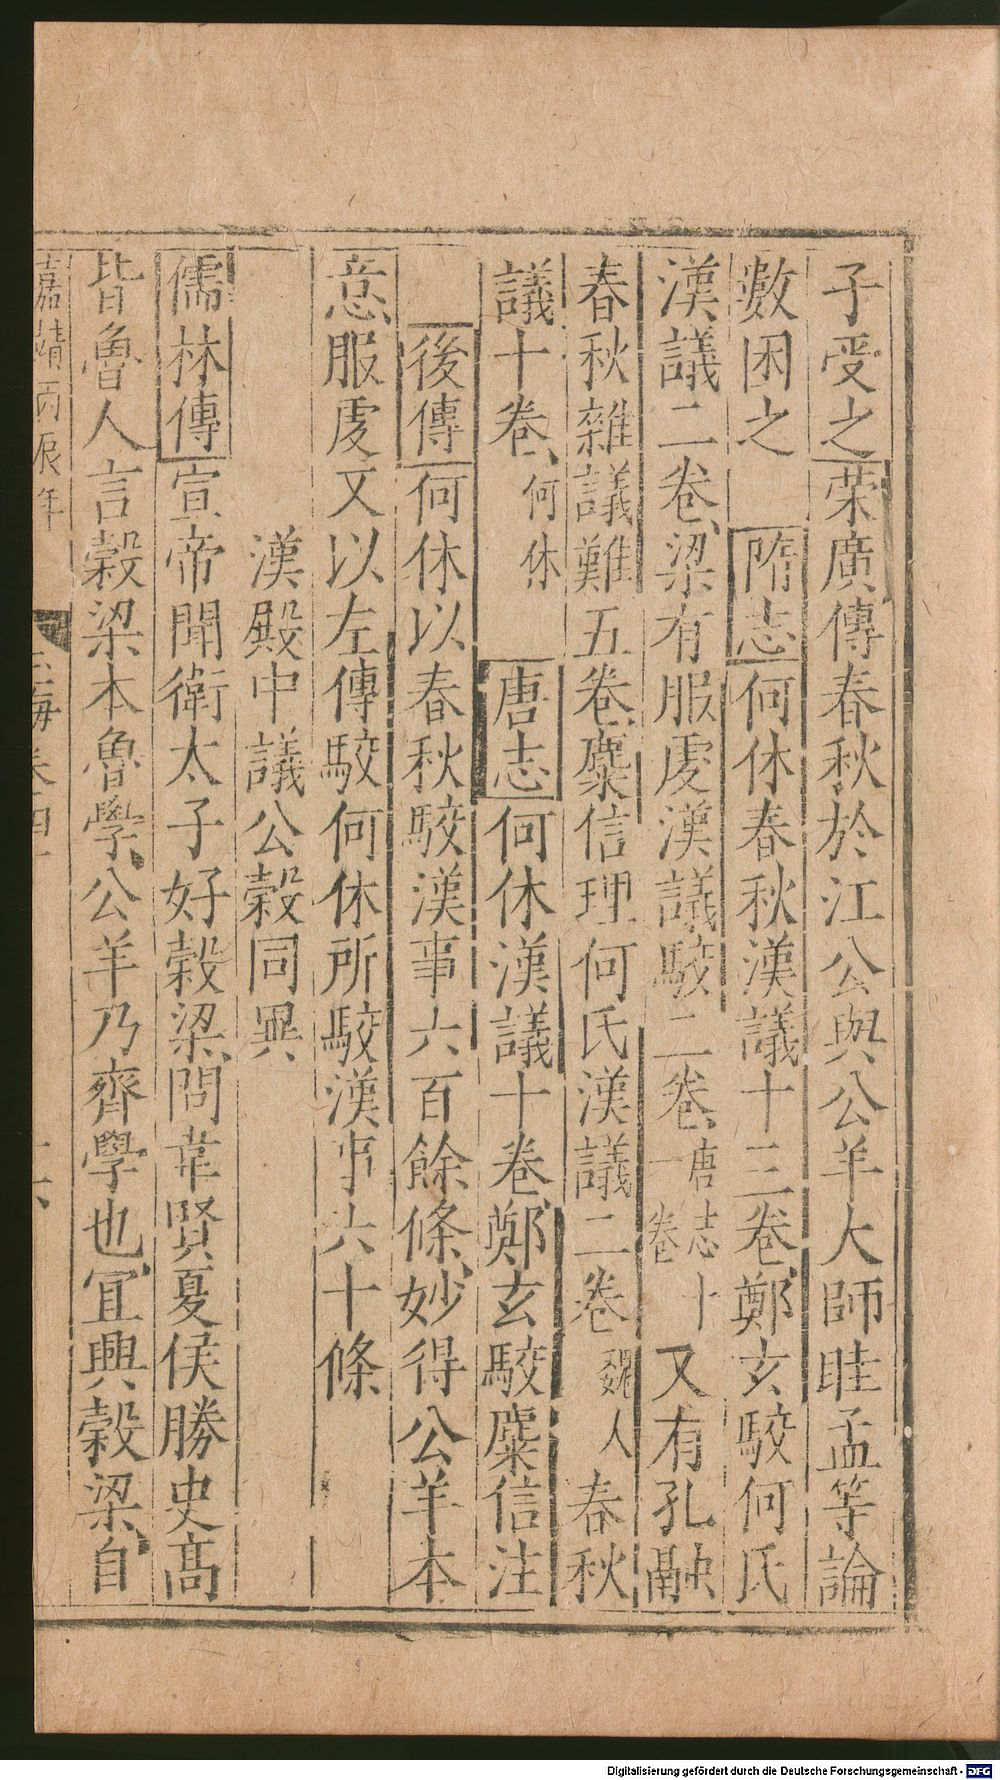 子受之榮廣傳春秋於江公與公羊大師眭孟等論
數困之 隋志何休春秋漢議十三卷鄭玄駮何氏
漢議二卷梁有服虔漢議駮二卷唐志十一卷又有孔融
春秋雜議難五卷糜信理何氏漢議二卷魏人春秋
議十卷何休 唐志何休漢議十卷鄭玄駮糜信注
後傳何休以春秋駮漢事六百餘條妙得公羊本
意服虔又以左傳駮何休所駮漢事六十條
漢殿中議公穀同異
儒林傳宣帝聞衛太子好穀梁問韋賢夏侯勝史高
皆魯人言穀梁本魯學公羊乃齊學也宜興穀梁自
嘉靖丙辰年 玉海卷四十 二六
Digitalisierung gefördert durch die Deutsche Forschungsgemeinschaft - DFG